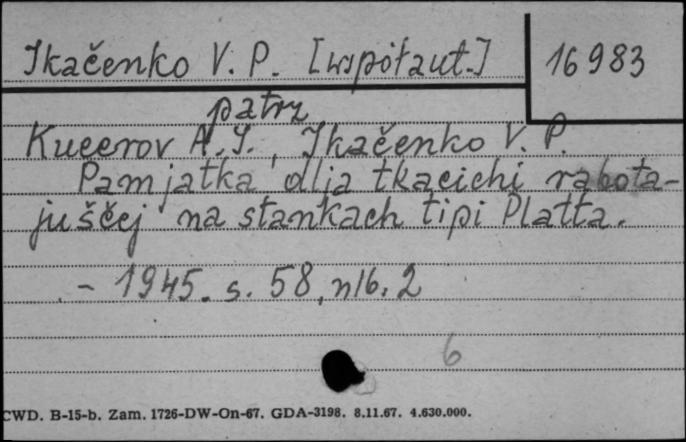 Tkačenko V. P. [współaut.] 16983
patrz
Kucerov A. I., Tkačenko V. P.
Pamjatka dlja tkacichi rabota-
juščej na stankach tipi Platta.
. – 1945. s. 58, nlb. 2
6
CWD. B-15-b. Zam. 1726-DW-On-67. GDA-3198. 8.11.67. 4.630.000.